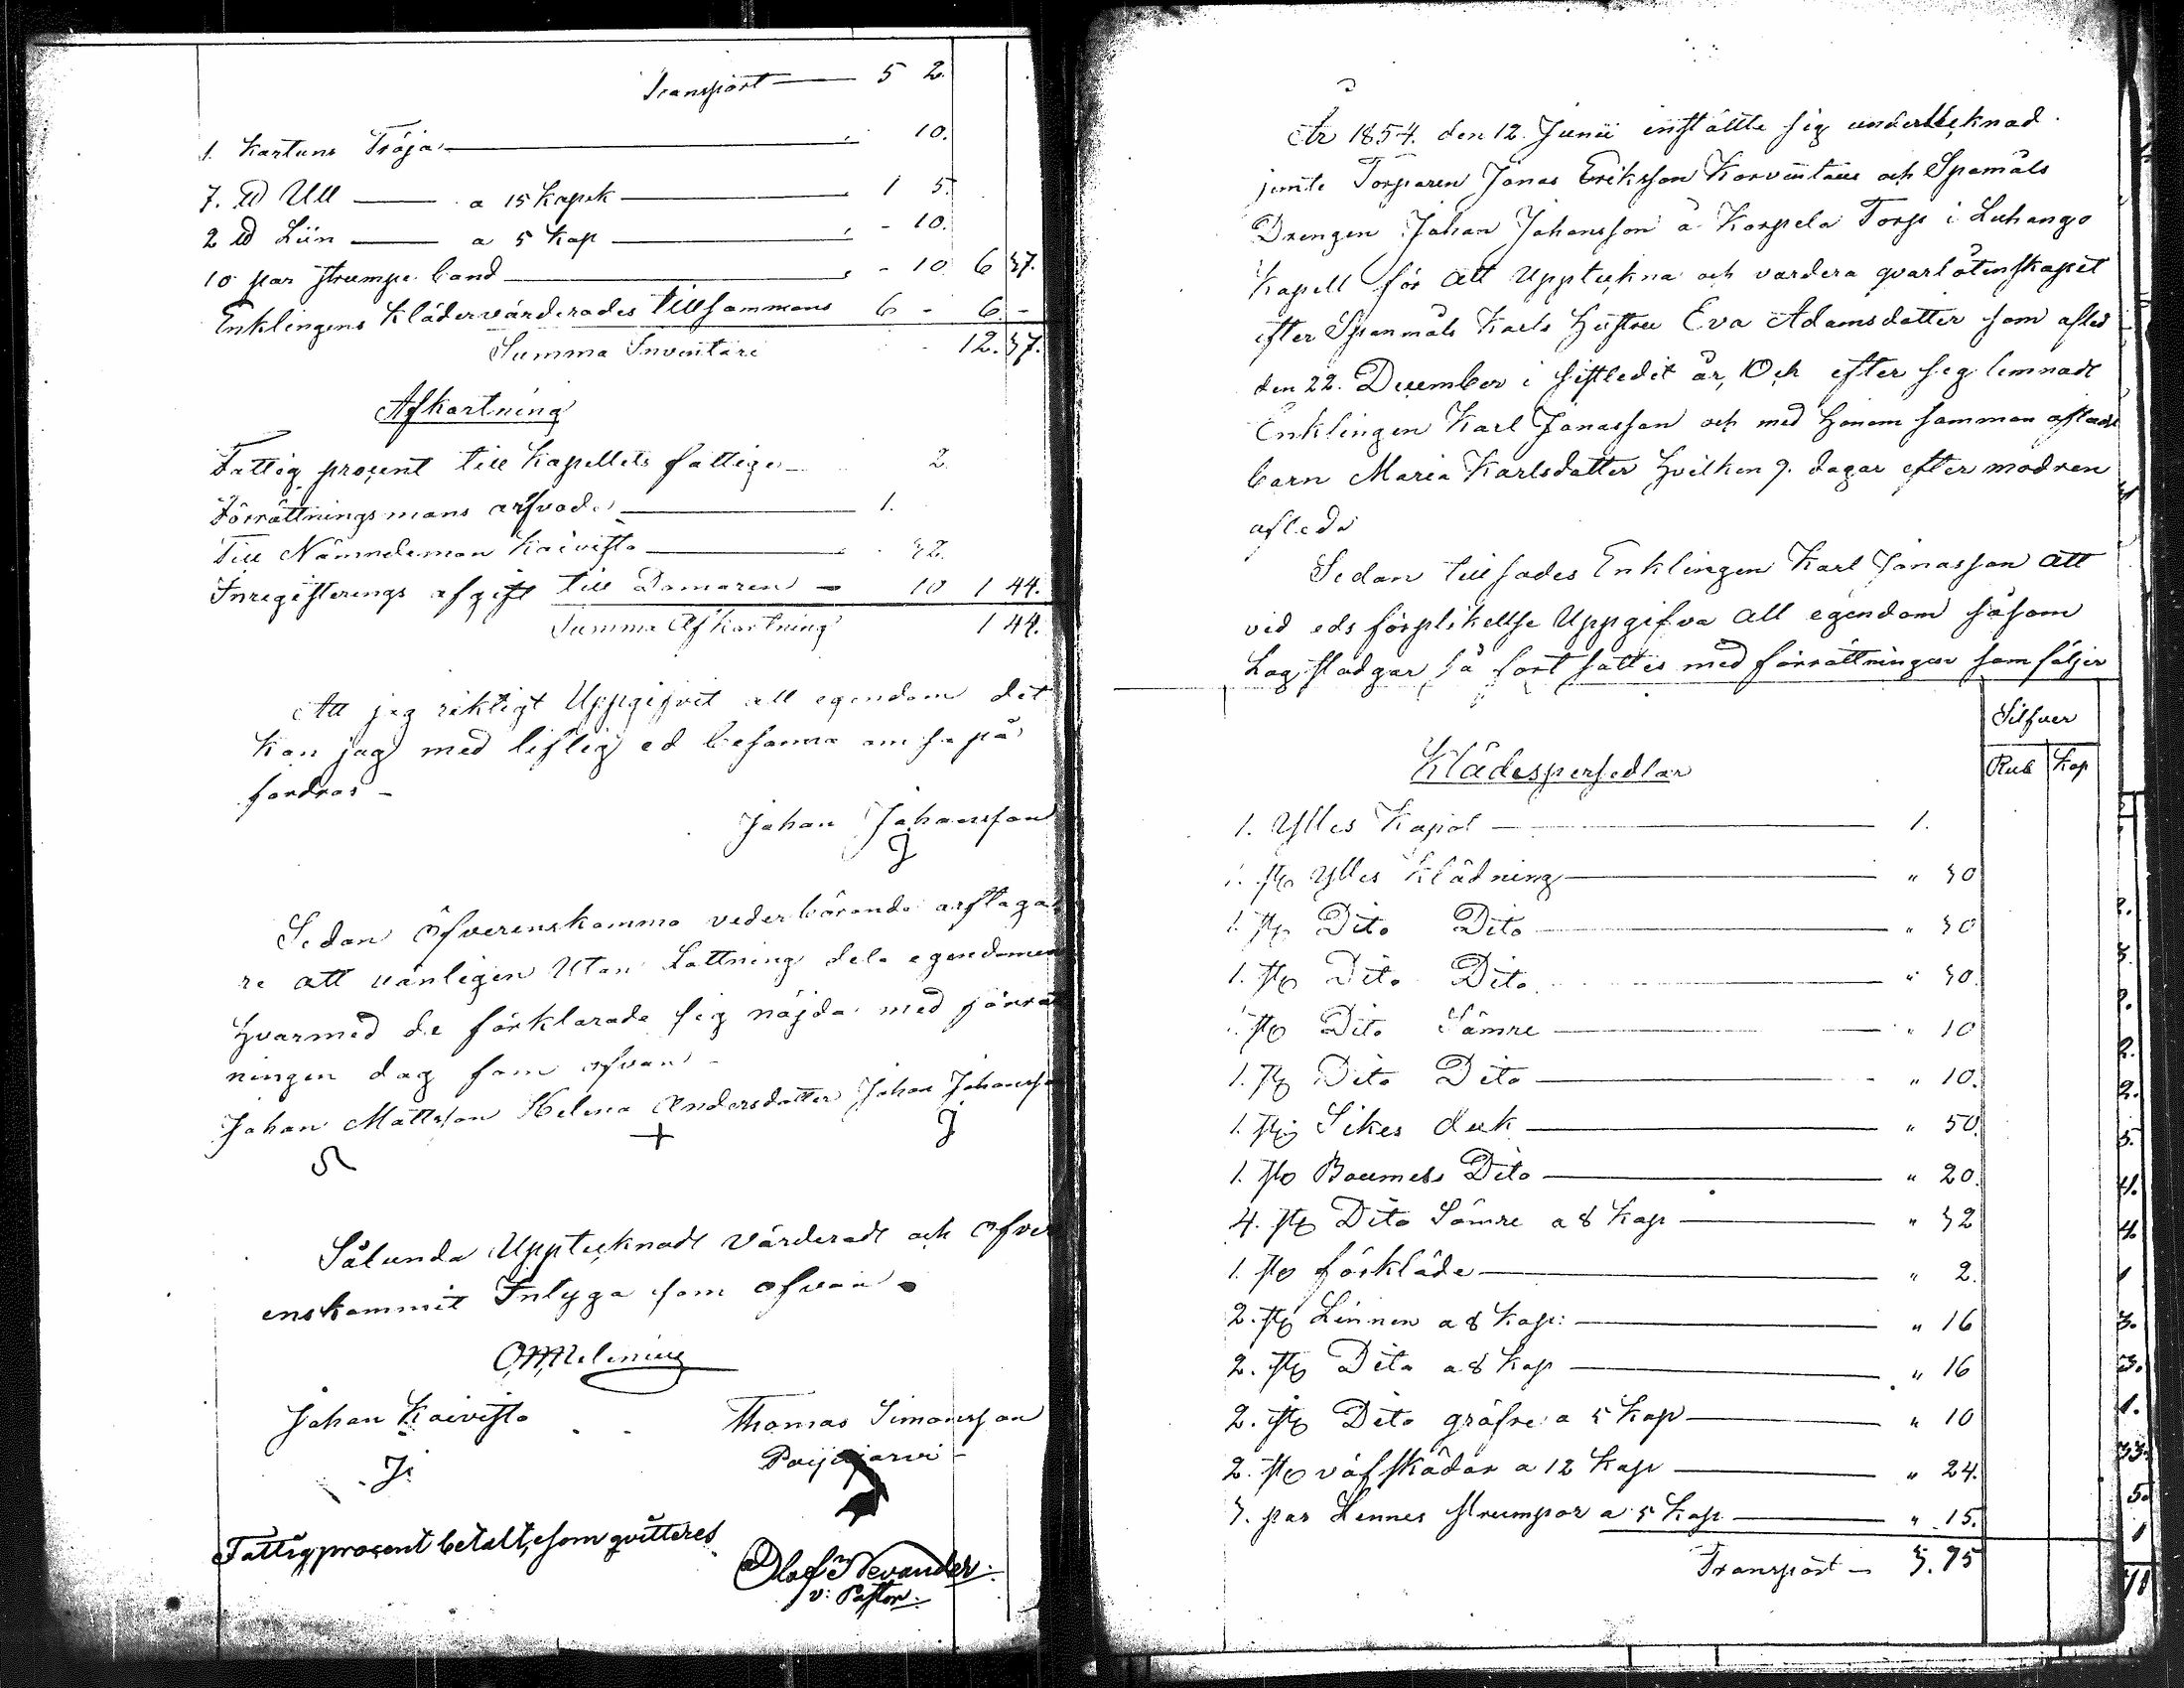 Transport — 5 2.
1. Kartuns Tröja — " 10.
7. ℔ Ull — a 15 Kapek — 1 5.
2 ℔ Liin — a 5 Kop — " - 10.
10 par strumpe band — " - 10 6 37.
Enklingens Kläder värderades tillsammans 6 - 6 -
Summa Inventarie 12. 37.
Afkortning
Fattig procent till Kapellets fattige — 2.
Förrättningsmans arfvode — 1.
Till Nämndeman Koivisto — 32.
Inregisterings afgift till Domaren — 10 1 44.
Summa Afkortning 1 44.
Att jag riktigt Uppgifvit all egendom det
kan jag med liflig ed besanna om så på
fordras —
Johan Johansson
J
Sedan öfverenskommo vederbörande arftaga
re att vänligen Utan Lottning dela egendomen
hvarmed de förklarade sig nöjda med förrät
ningen dag som ofvan -
Johan Mattsson Helena Andersdotter Johan Johansso
+ J
Sålunda Uppteknadt Värderadt och öfver
enskommit Intyga som ofvan
Johan Koivisto Thomas Simonsson
J. Päijäjärvi -
Fattigprocent betalt, som qvitteres
Olof Nevander
v: Pastor.
År 1854. den 12. Junii inställte sig underteknad
jemte Torparen Jonas Eriksson och Spamåls
Drengen Johan Johansson å Korpela Torp i Luhango
Kapell för att Upptekna och vardera qvarlåtenskapet
efter Spanmåls Karls Hustru Eva Adamsdotter som afled
den 22. December i sistledit år, Och efter sig lemnade
Enklingen Karl Jonasson och med honom samman aflade
barn Maria Karlsdotter hvilken 9. dagar efter modren
afleda
Sedan tillsades Enklingen Karl Jonasson att
vid eds förpliktellse Uppgifva all egendom såsom
Lag stadgar så fort sattes med förrättningen som följer
Silfver
Rub Kop
Klädespersedlar
1. Ylles Kapot — 1.
1. st Ylles Klädning — " 30
1. st Dito Dito — " 30
1. st Dito Dito — " 30.
1. st Dito Sämre — " 10
1. st Dito Dito — " 10.
1. st Sikes duk — " 50.
1. st Boumels Dito — " 20.
4. st Dito Sämre a 8 Kop — " 32
1. st förkläde — " 2.
2. st Linnen a 8 Kop: — " 16
2. st Dito a 8 Kop — " 16
2. st Dito gröfre a 5 Kop — " 10
2. st väfskådor a 12 Kop — " 24.
3. par Lennes strumpor a 5 Kop — " 15.
Transport — 3. 75